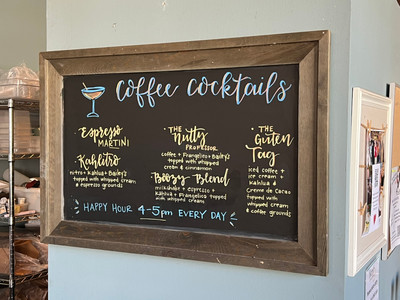 coffee cocktails
Espresso
MARTINI
Kahlitro
nitro + Kahlua + Baileys
topped with whipped cream
& espresso grounds
THE
Nutty
PROFESSOR
coffee + Frangelico + Bailey's
topped with whipped
cream & cinnamon
Boozy Blend
milkshake + espresso +
Kahlua + Frangelico topped
with whipped cream
THE
Guten
Tag
iced coffee +
ice cream +
Kahlua &
Creme de Cacao
topped with
whipped cream
& coffee grounds
HAPPY HOUR 4-5pm EVERY DAY